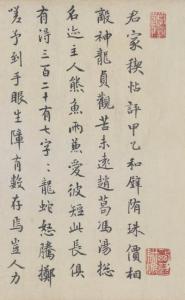 君家禊帖評甲乙和璧隋珠價相
敵神龍貞觀苦未遠趙葛馮湯總
名迹主人熊魚兩兼愛彼短此長俱
有得三百二十有七字〻〻龍蛇怒騰擲
嗟予到手眼生障有數存焉豈人力